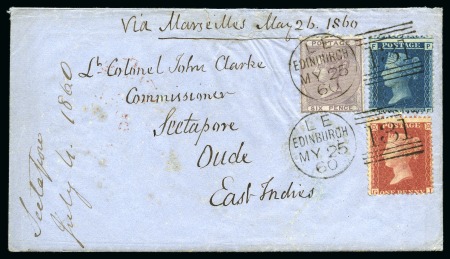 Via Marseilles May 26. 1860
Lt. Colonel John Clarke
Commissioner
Seetapore
Oude
East Indies
Seetapore
July 4. 1860
EDINBURGH
MY 25
60
LE
EDINBURGH
MY 25
60
131
POSTAGE
SIX PENCE
POSTAGE
F
F
ONE PENNY
G
I